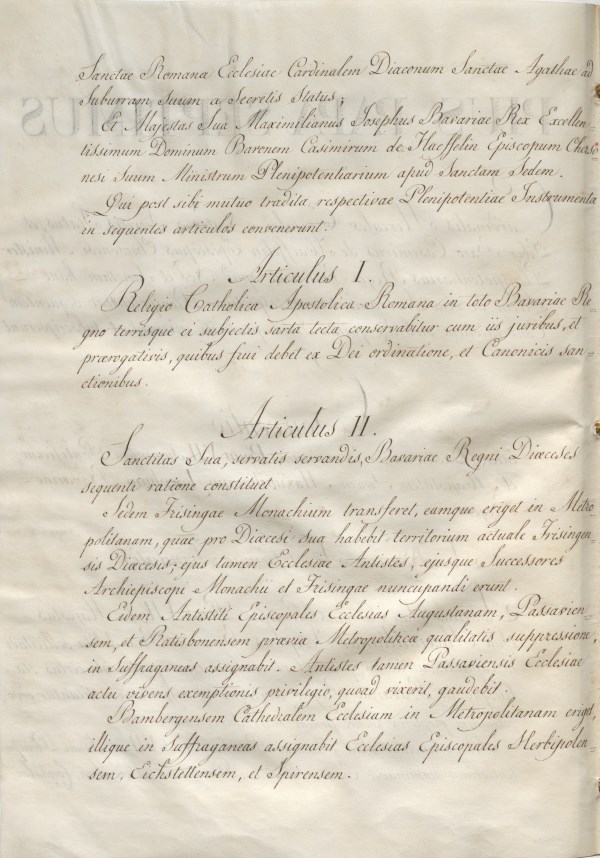 Sanctae Romana Ecclesiae Cardinalem Diaconum Sanctae Agathae ad
Suburram, Suum a Secretis Status;
Et Majestas Sua Maximilianus Josephus Bavariae Rex Excellen=
tissimum Dominum Baronem Casimirum de Haeffelin Episcopum Cherso=
nesi Suum Ministrum Plenipotentiarium apud Sanctam Sedem.
Qui post sibi mutuo tradita respectivae Plenipotentiae Instrumenta
in sequentes articulos convenerunt.
Articulus I.
Religio Catholica Apostolica Romana in toto Bavariae Re=
gno terrisque ei subjectis sarta tecta conservabitur cum iis juribus, et
praerogativis, quibus frui debet ex Dei ordinatione, et Canonicis san=
ctionibus.
Articulus II.
Sanctitas Sua, servatis servandis, Bavariae Regni Dioeceses
sequenti ratione constituet.
Sedem Frisingae Monachium transferet, eamque eriget in Metro=
politanam, quae pro Dioecesi sua habebit territorium actuale Frisingen=
sis Dioecesis; ejus tamen Ecclesiae Antistes, ejusque Successores
Archiepiscopi Monachii et Frisingae nuncupandi erunt.
Eidem Antistiti Episcopales Ecclesias Augustanam, Passavien=
sem, et Ratisbonensem praevia Metropoliticae qualitatis suppressione,
in Suffraganeas assignabit. Antistes tamen Passaviensis Ecclesiae
actu vivens exemptionis privilegio, quoad vixerit, gaudebit.
Bambergensem Cathedralem Ecclesiam in Metropolitanam eriget,
illique in Suffraganeas assignabit Ecclesias Episcopales Herbipolen=
sem, Eichstettensem, et Spirensem.